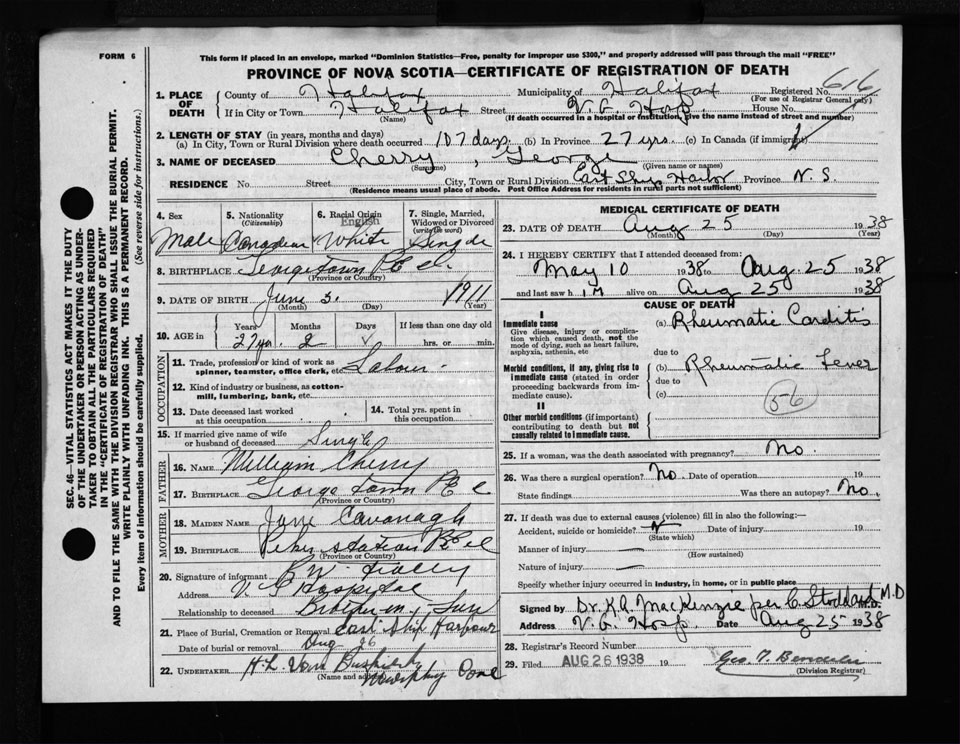 FORM 6
This form if placed in an envelope, marked "Dominion Statistics—Free, penalty for improper use $300," and properly addressed will pass through the mail "FREE"
PROVINCE OF NOVA SCOTIA—CERTIFICATE OF REGISTRATION OF DEATH
SEC. 46—VITAL STATISTICS ACT MAKES IT THE DUTY OF THE UNDERTAKER OR PERSON ACTING AS UNDERTAKER TO OBTAIN ALL THE PARTICULARS REQUIRED IN THE "CERTIFICATE OF REGISTRATION OF DEATH"
AND TO FILE THE SAME WITH THE DIVISION REGISTRAR WHO SHALL ISSUE THE BURIAL PERMIT.
WRITE PLAINLY WITH UNFADING INK. THIS IS A PERMANENT RECORD.
Every item of information should be carefully supplied. (See reverse side for instructions.)
1. PLACE OF DEATH County of Halifax Municipality of Halifax Registered No. 616
(For use of Registrar General only)
If in City or Town Halifax Street V. G. Hosp. House No.
(Name) (If death occurred in a hospital or institution, give the name instead of street and number)
2. LENGTH OF STAY (in years, months and days)
(a) In City, Town or Rural Division where death occurred 107 days (b) In Province 27 yrs. (c) In Canada (if immigrant)
3. NAME OF DECEASED Cherry, George
(Surname) (Given name or names)
RESIDENCE No. Street City, Town or Rural Division East Ship Harbor Province N. S
(Residence means usual place of abode. Post Office Address for residents in rural parts not sufficient)
4. Sex Male
5. Nationality (Citizenship) Canadian
6. Racial Origin English White
7. Single, Married, Widowed or Divorced (write the word) Single
8. BIRTHPLACE Georgetown P E I.
(Province or Country)
9. DATE OF BIRTH June 3. 1911
(Month) (Day) (Year)
10. AGE in Years 27 yr. Months 2 Days If less than one day old hrs. or min.
OCCUPATION
11. Trade, profession or kind of work as spinner, teamster, office clerk, etc. Labour.
12. Kind of industry or business, as cotton-mill, lumbering, bank, etc.
13. Date deceased last worked at this occupation
14. Total yrs. spent in this occupation
15. If married give name of wife or husband of deceased Single
FATHER
16. NAME William Cherry
17. BIRTHPLACE George town P E I
(Province or Country)
MOTHER
18. MAIDEN NAME Jane Cavanagh
19. BIRTHPLACE station P.E.I
(Province or Country)
20. Signature of informant W.
Address V. G Hospital
Relationship to deceased Brother in Law
21. Place of Burial, Cremation or Removal East Ship Harbour
Date of burial or removal Aug 26
22. UNDERTAKER H. L. Van
(Name and address)
MEDICAL CERTIFICATE OF DEATH
23. DATE OF DEATH Aug 25 1938
(Month) (Day) (Year)
24. I HEREBY CERTIFY that I attended deceased from
May 10 1938 to Aug. 25 1938
and last saw him alive on Aug 25 1938
CAUSE OF DEATH
I
Immediate cause
Give disease, injury or complication which caused death, not the mode of dying, such as heart failure, asphyxia, asthenia, etc
(a) Rheumatic Carditis
due to
Morbid conditions, if any, giving rise to immediate cause (stated in order proceeding backwards from immediate cause).
(b) Rheumatic Fever
due to
(c)
56
II
Other morbid conditions (if important) contributing to death but not causally related to immediate cause.
25. If a woman, was the death associated with pregnancy? No.
26. Was there a surgical operation? No. Date of operation 19
State findings Was there an autopsy? No.
27. If death was due to external causes (violence) fill in also the following:—
Accident, suicide or homicide? Date of injury 19
(State which)
Manner of injury —
(How sustained)
Nature of injury —
Specify whether injury occurred in industry, in home, or in public place
Signed by Dr. K.A. MacKenzie per C Stoddard M.D. M.D.
Address V. G. Hosp. Date Aug 25 1938
28. Registrar's Record Number
29. Filed AUG 26 1938 19
(Division Registrar)